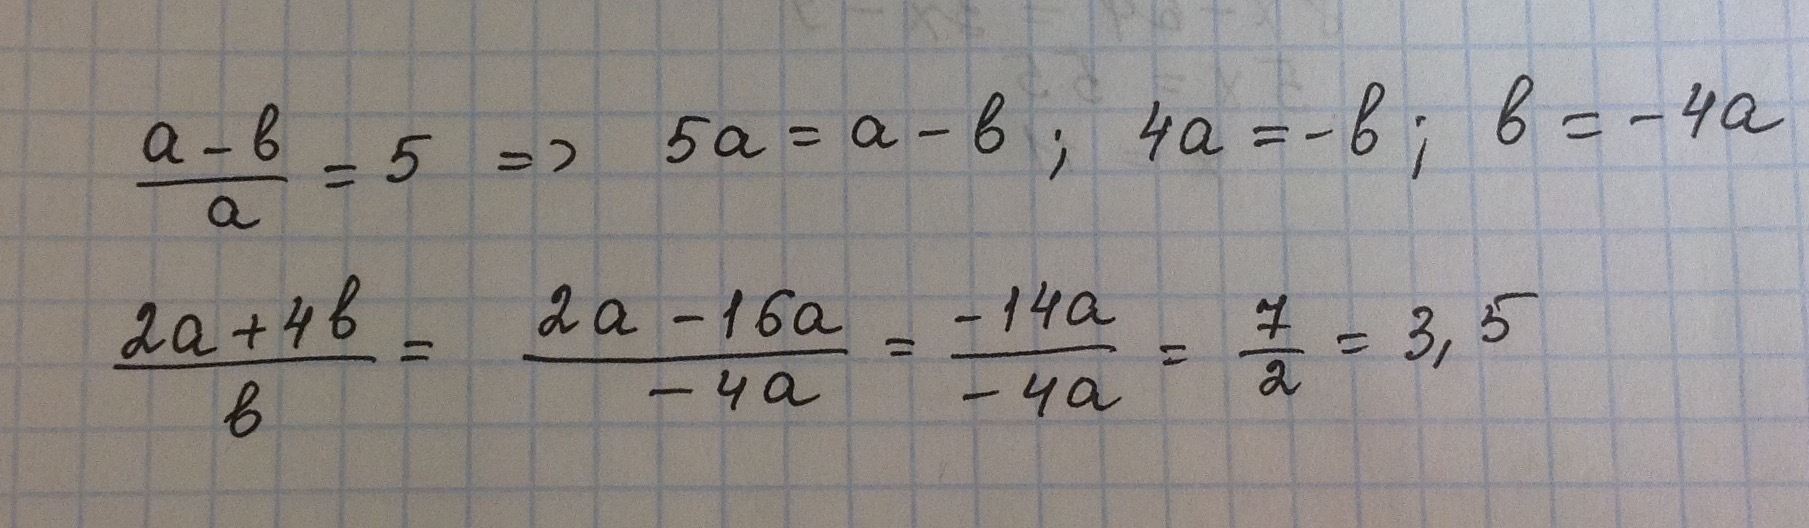 (a-b)/a = 5 => 5a = a - b ; 4a = -b ; b = -4a
(2a+4b)/b = (2a-16a)/(-4a) = (-14a)/(-4a) = 7/2 = 3,5